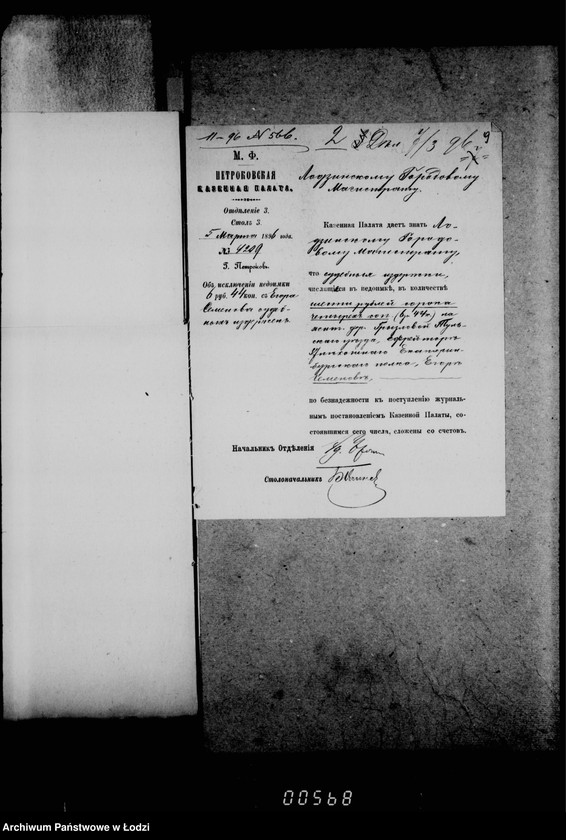 11-96 № 566.
2
Докл. 7/3 96 г.
9
М. Ф.
ПЕТРОКОВСКАЯ
КАЗЕННАЯ ПАЛАТА.
Отдѣленіе 3.
Столъ 3.
5 Марта 1896 года.
№ 4209
Г. Петроковъ.
Объ исключеніи недоимки
6 руб. 44 коп. съ Егора
Семенова судеб-
ныхъ издержекъ
Лодзинскому Городовому
Магистрату.
Казенная Палата даетъ знать Ло-
дзинскому Городо-
вому Магистрату,
что судебныя издержки,
числящіяся въ недоимкѣ, въ количествѣ
шести рублей сорока
четырехъ коп (6 р. 44 к.) на
дер. Туль-
скаго уѣзда,
Екатерин-
бургскаго полка, Егорѣ
Семеновѣ,
по безнадежности къ поступленію журналь-
нымъ постановленіемъ Казенной Палаты, со-
стоявшимся сего числа, сложены со счетовъ.
Начальникъ Отдѣленія
Столоначальникъ
00568
Archiwum Państwowe w Łodzi